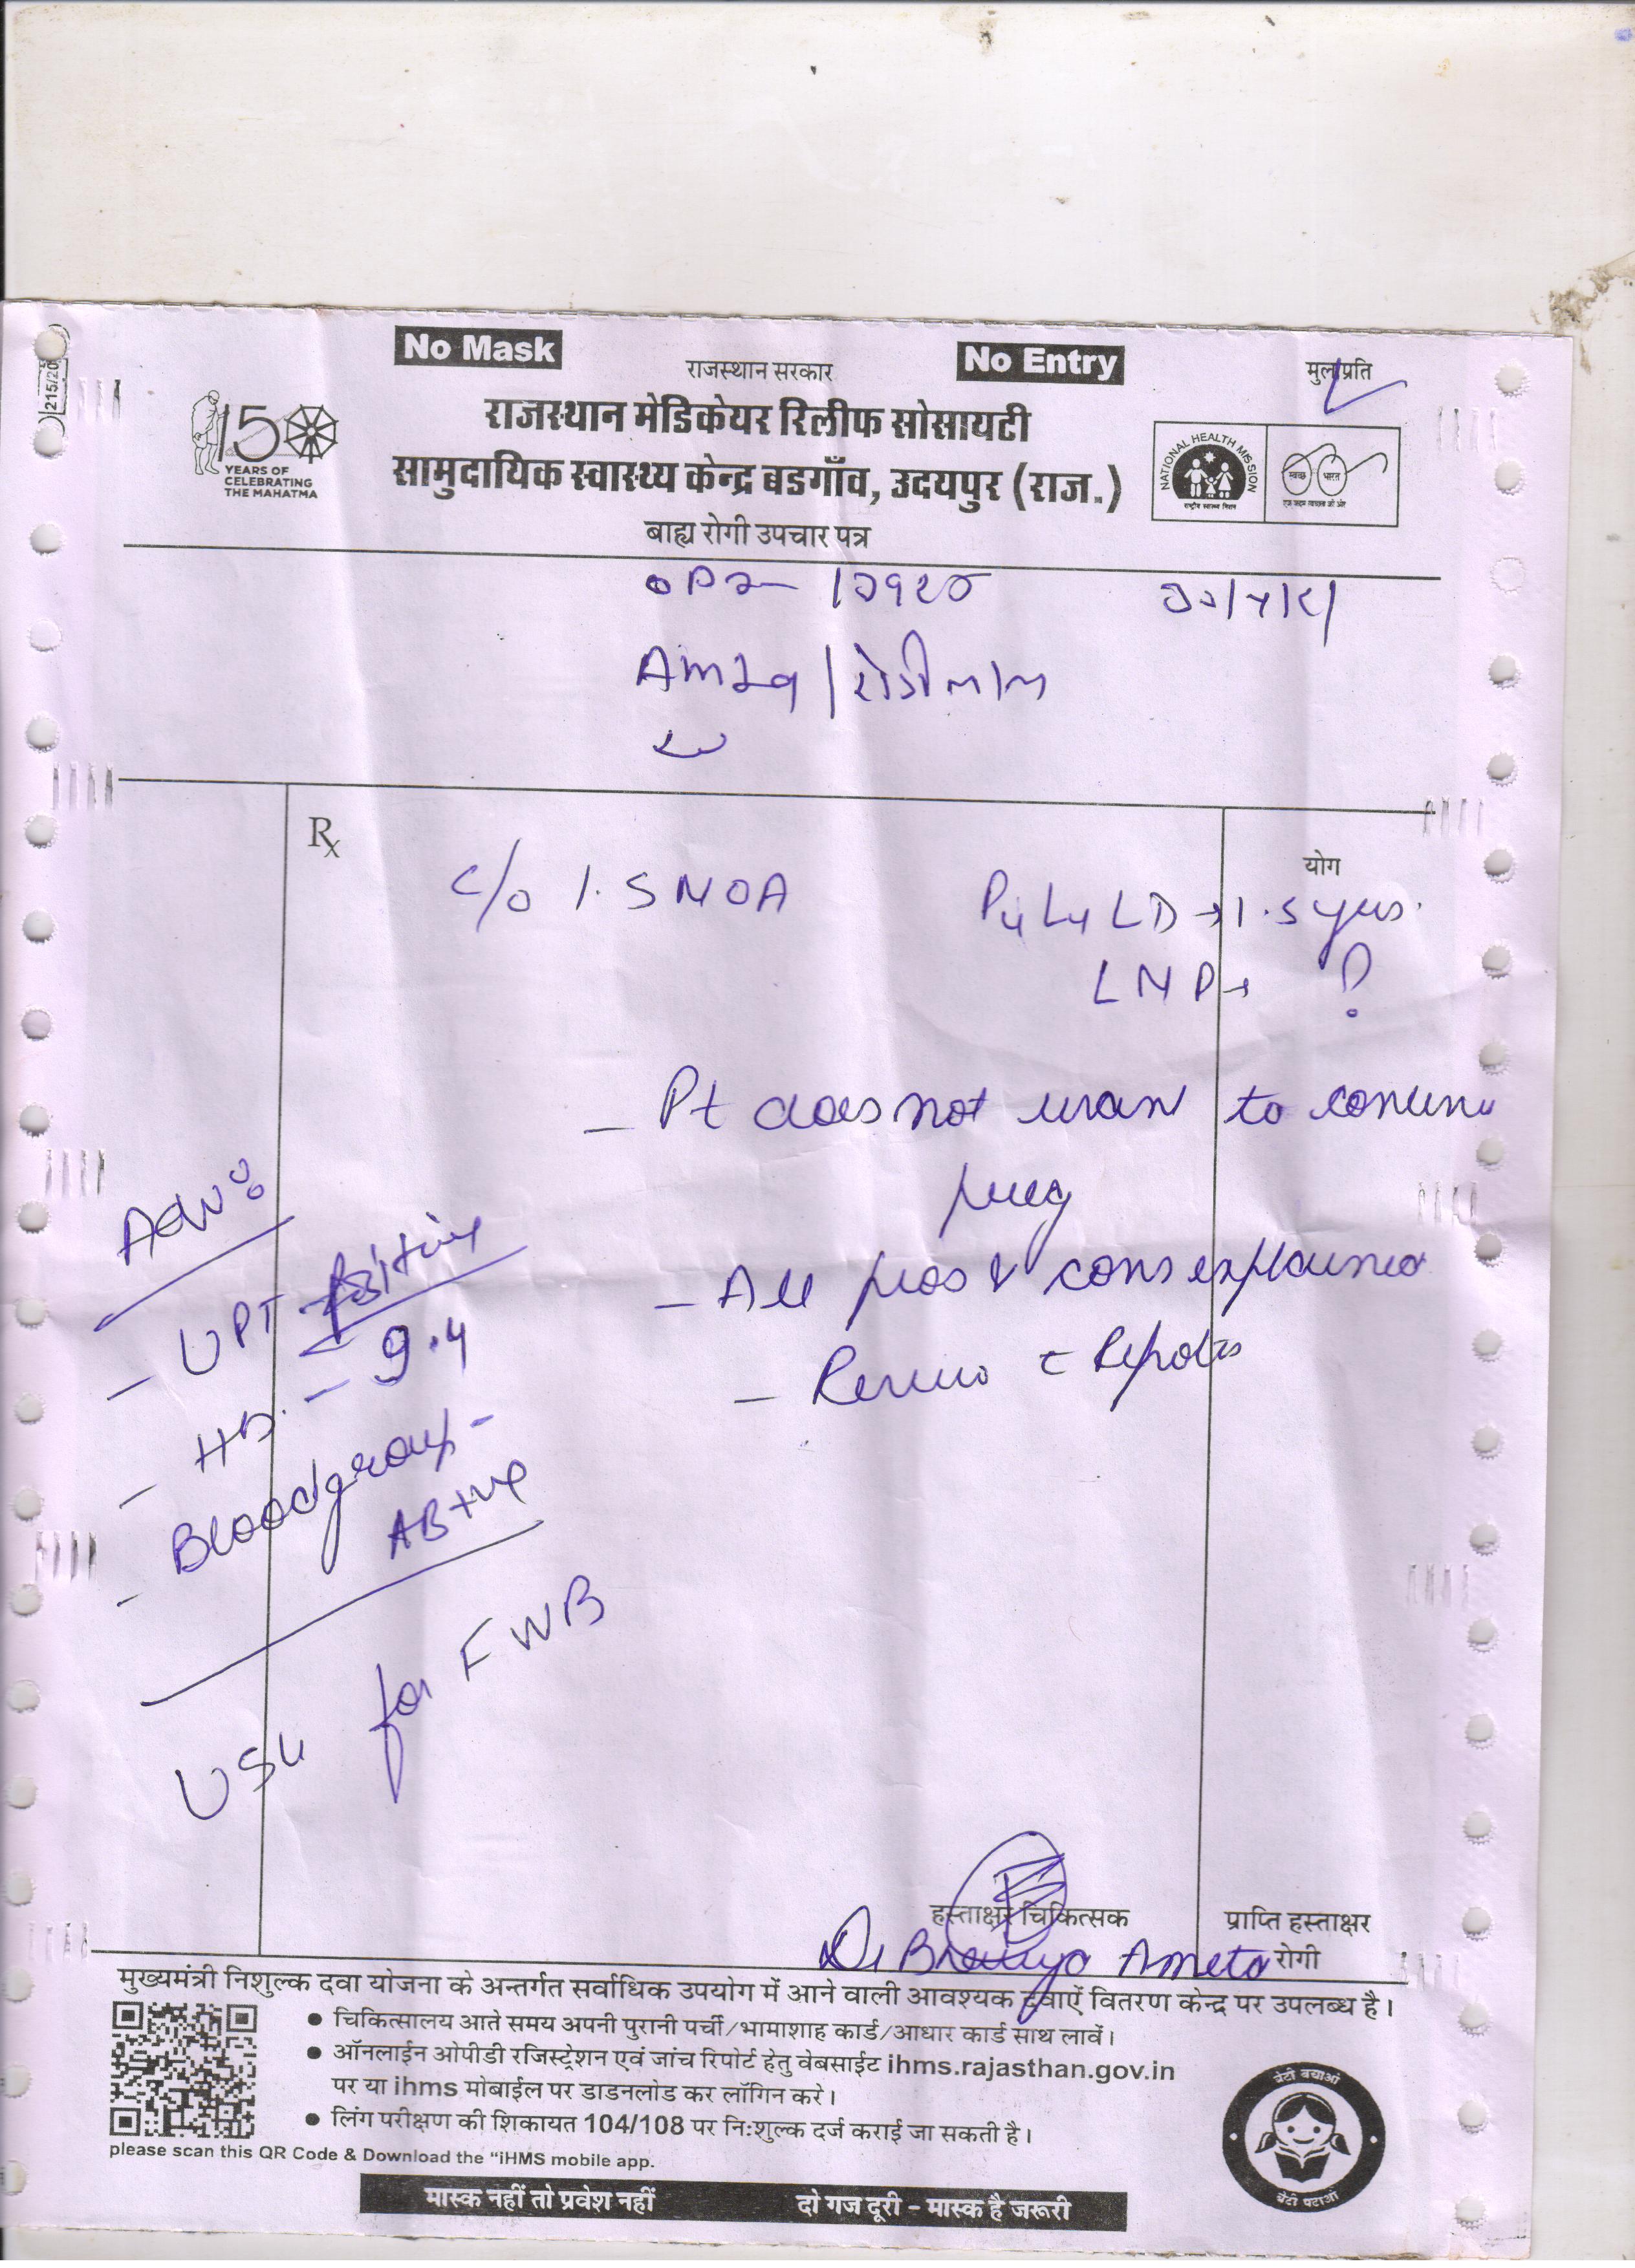 No Mask
No Entry
राजस्थान सरकार
मुल प्रति
215/20
राजस्थान मेडिकेयर रिलीफ सोसायटी
सामुदायिक स्वास्थ्य केन्द्र बडगाँव, उदयपुर (राज.)
बाह्य रोगी उपचार पत्र
150
YEARS OF
CELEBRATING
THE MAHATMA
NATIONAL HEALTH MISSION
राष्ट्रीय स्वास्थ्य मिशन
स्वच्छ भारत
एक कदम स्वच्छता की ओर
Rx
योग
C/O 1.5 MOA
P4 L4 LD → 1.5 yrs.
LMP → ?
- Pt does not want to
preg
- All pros & cons explained
- Review c Reports
Adv:
- UPT - Positive
- HB. - 9.4
- Blood group -
AB+ve
USG for FWB
हस्ताक्षर चिकित्सक
प्राप्ति हस्ताक्षर
रोगी
Dr Ameta
मुख्यमंत्री निशुल्क दवा योजना के अन्तर्गत सर्वाधिक उपयोग में आने वाली आवश्यक दवाएें वितरण केन्द्र पर उपलब्ध है।
• चिकित्सालय आते समय अपनी पुरानी पर्ची/भामाशाह कार्ड/आधार कार्ड साथ लावें।
• ऑनलाईन ओपीडी रजिस्ट्रेशन एवं जांच रिपोर्ट हेतु वेबसाईट ihms.rajasthan.gov.in
पर या ihms मोबाईल पर डाडनलोड कर लॉगिन करे।
• लिंग परीक्षण की शिकायत 104/108 पर नि:शुल्क दर्ज कराई जा सकती है।
please scan this QR Code & Download the "iHMS mobile app.
बेटी बचाओ
बेटी पढाओ
मास्क नहीं तो प्रवेश नहीं
दो गज दूरी - मास्क है जरूरी